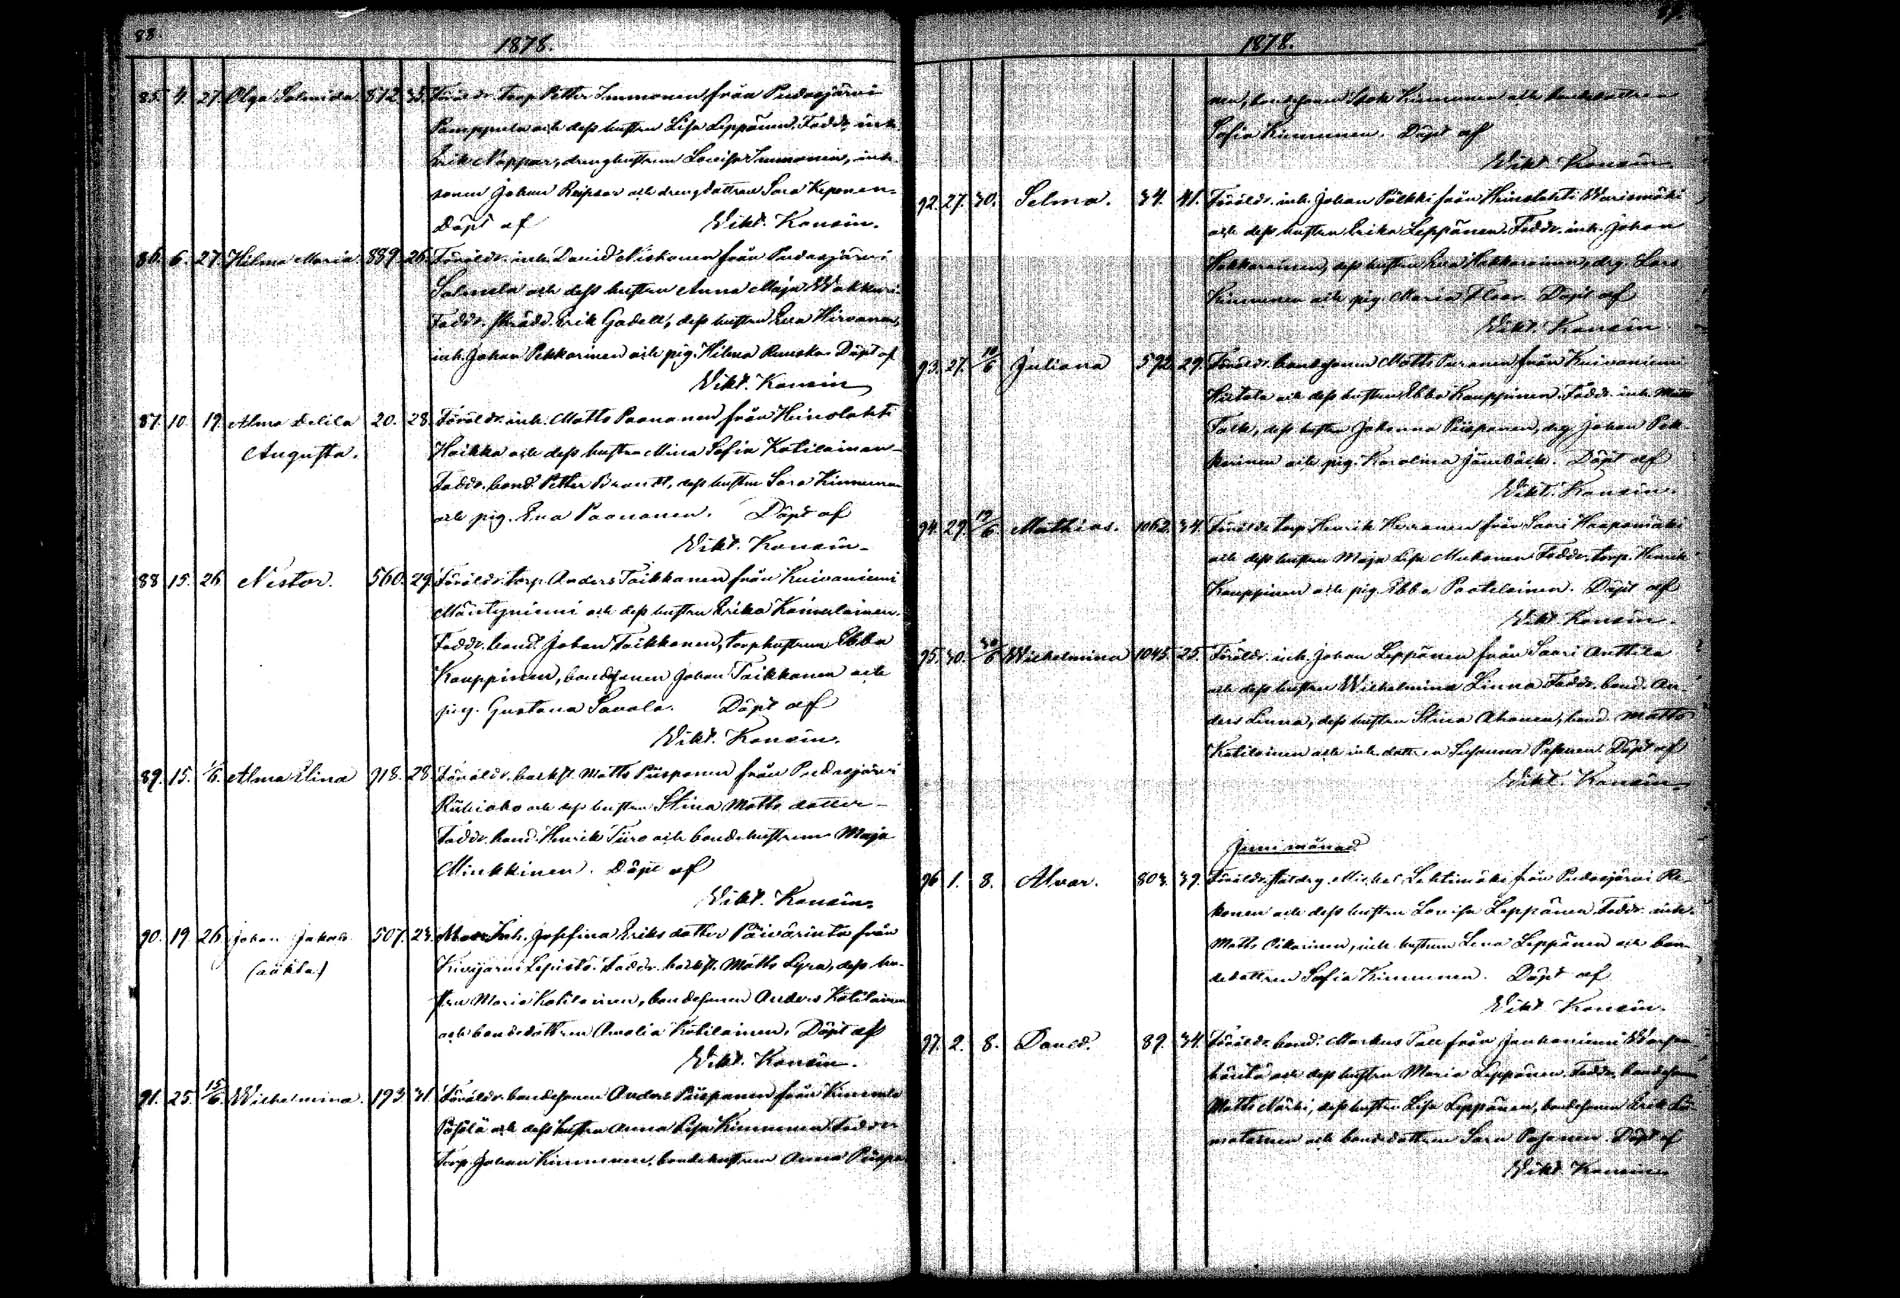 88.
1878.
85. 4. 27. Olga Solmida. 812. 35. Föräldr. torp. Petter Immonen från Pudasjärvi
Pamppula och dess hustru Lisa Leppänen. Faddr. inh.
Erik Noppar, dränghustrun Lovisa Immonen, inh.
sonen Johan och drengdottren Sara Keponen.
Döpt af Vikt. Konsin.
86. 6. 27. Hilma Maria. 889. 26. Föräldr. inh. David Niskanen från Pudasjärvi
Salmela och dess hustru Anna Maja Wakkuri.
Faddr. skrädd. Erik Gadell, dess hustru Eva Hirvonen,
inh. Johan Pekkarinen och pig. Hilma Ruuska. Döpt af
Vikt. Konsin
87. 10. 19. Alma Delila 20. 28. Föräldr. inh. Matts Paananen från Heinolahti
Augusta. Haikka och dess hustru Mina Sofia Kotilainen.
Faddr. bond. Petter Brandt, dess hustru Sara Kinnunen
och pig. Eva Paananen. Döpt af
Vikt. Konsin.
88. 15. 26. Nestor. 560. 29. Föräldr. torp. Anders Taikkanen från Kuivaniemi
Mäntyniemi och dess hustru Erika Kainulainen.
Faddr. bond. Johan Taikkanen, torphustrun Ebba
Kauppinen, bondesonen Johan Taikkanen och
pig. Gustava Savola. Döpt af
Vikt. Konsin.
89. 15. 1/6. Alma Elina 918. 28. Föräldr. backst. Matts Piisponen från Pudasjärvi
Riihiaho och dess hustru Stina Matts dotter.
Faddr. bond. Henrik Tiiro och bondehustrun Maja
Minkkinen. Döpt af
Vikt. Konsin.
90. 19. 26. Johan Jakob 507. 23. Inh. Josefina Eriks dotter Päivärinta från
(oäkta) Kivijärvi Lepistö. Faddr. backst. Matts Lyra, dess hu-
stru Maria Kotilainen, bondesonen Anders Kotilainen
och bondedottren Amalia Kotilainen. Döpt af
Vikt. Konsin.
91. 25. 15/6. Wilhelmina. 193. 31. Föräldr. bondesonen Anders Piisponen från Kinnula
Pösölä och dess hustru Anna Lisa Kinnunen. Faddr.
torp. Johan Kinnunen, bondehustrun Anna Piispo-
89.
1878.
nen, bondesonen Isak Kinnunen och bondedottren
Sofia Kinnunen. Döpt af
Vikt. Konsin.
92. 27. 30. Selma. 34. 41. Föräldr. inh. Johan Pölkki från Heinolahti Warismäki
och dess hustru Erika Leppänen. Faddr. inh. Johan
Hakkarainen, dess hustru Eva Hakkarainen, drg. Lars
Kinnunen och pig. Maria Floor. Döpt af
Vikt. Konsin
93. 27. 10/6 Juliana 592. 29. Föräldr. bondesonen Matts Puranen från Kuivaniemi
Hietala och dess hustru Ebba Kauppinen. Faddr. inh. Matts
Falk, dess hustru Johanna Piisponen, drg. Johan Pek-
karinen och pig. Karolina Jämbäck. Döpt af
Vikt. Konsin.
94. 29. 19/6. Mathias. 1062. 34. Föräldr. torp. Henrik Herranen från Saari Haapamäki
och dess hustru Maja Lisa Mutonen. Faddr. torp. Henrik
Kauppinen och pig. Ebba Paatelainen. Döpt af
Vikt. Konsin.
95. 30. 30/6 Wilhelmina 1045. 25. Föräldr. inh. Johan Leppänen från Saari Anttila
och dess hustru Wilhelmina Linna. Faddr. bond. An-
ders Linna, dess hustru Stina Ahonen, bond. Matts
Kotilainen och inh. dottren Susanna Paponen. Döpt af
Vikt. Konsin.
Juni månad
96. 1. 8. Alvar. 803. 39. Föräldr. Michel Lehtimäki från Pudasjärvi Re-
konen och dess hustru Lovisa Leppänen. Faddr. inh.
Matts Oikarinen, inh. hustrun Lena Leppänen och bon-
dedottren Sofia Kinnunen. Döpt af
Vikt Konsin.
97. 2. 8. David. 89. 34. Föräldr. bond. Markus Tall från Jauhoniemi
och dess hustru Maria Leppänen. Faddr. bondesonen
Matts Närhi, dess hustru Lisa Leppänen, bondesonen Erik
och bondedottren Sara Pasanen. Döpt af
Vikt Konsin